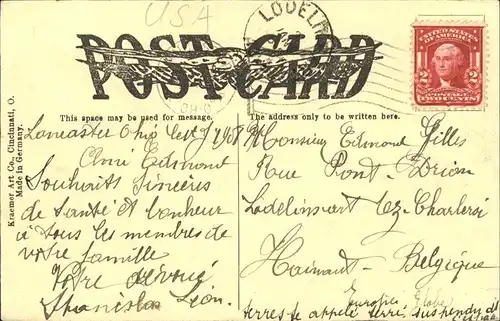 USA
LODELIN
POST CARD
2 2
POSTAGE
TWO CENTS
This space may be used for message.
The address only to be written here.
Kraemer Art Co., Cincinnati, O.
Made in Germany.
Lancaster Ohio
Ami Edmond
Souhaits Sincères
de Santé et bonheur
à tous les membres de
votre famille
Votre dévoué
Stanislas Lion.
Monsieur Edmond Gilles
Rue Pont-Drion
Lodelinsart Lez-Charleroi
Hainaut Belgique
terres